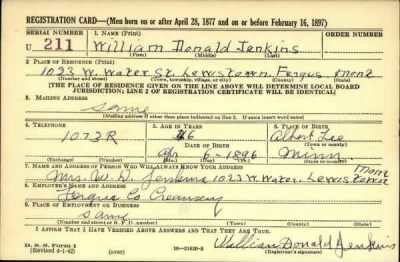 REGISTRATION CARD—(Men born on or after April 28, 1877 and on or before February 16, 1897)
SERIAL NUMBER 1. NAME (Print) ORDER NUMBER
U 211 William Donald Jenkins
(First) (Middle) (Last)
2. PLACE OF RESIDENCE (Print)
1023 W. Water St. Lewistown Fergus Mont
(Number and street) (Town, township, village, or city) (County) (State)
[THE PLACE OF RESIDENCE GIVEN ON THE LINE ABOVE WILL DETERMINE LOCAL BOARD
JURISDICTION; LINE 2 OF REGISTRATION CERTIFICATE WILL BE IDENTICAL]
3. MAILING ADDRESS
Same
[Mailing address if other than place indicated on line 2. If same insert word same]
4. TELEPHONE 5. AGE IN YEARS 6. PLACE OF BIRTH
1073R 46 Albert Lea
DATE OF BIRTH (Town or county)
1896 Minn.
(Exchange) (Number) (Mo.) (Day) (Yr.) (State or country)
7. NAME AND ADDRESS OF PERSON WHO WILL ALWAYS KNOW YOUR ADDRESS
Mrs. W. D. Jenkins 1023 W. Water, Lewistown Mont
8. EMPLOYER'S NAME AND ADDRESS
Fergus Co Creamery
9. PLACE OF EMPLOYMENT OR BUSINESS
Same
(Number and street or R. F. D. number) (Town) (County) (State)
I AFFIRM THAT I HAVE VERIFIED ABOVE ANSWERS AND THAT THEY ARE TRUE.
D. S. S. Form 1 William Donald Jenkins
(Revised 4-1-42) (over) 16—21630-2 (Registrant's signature)